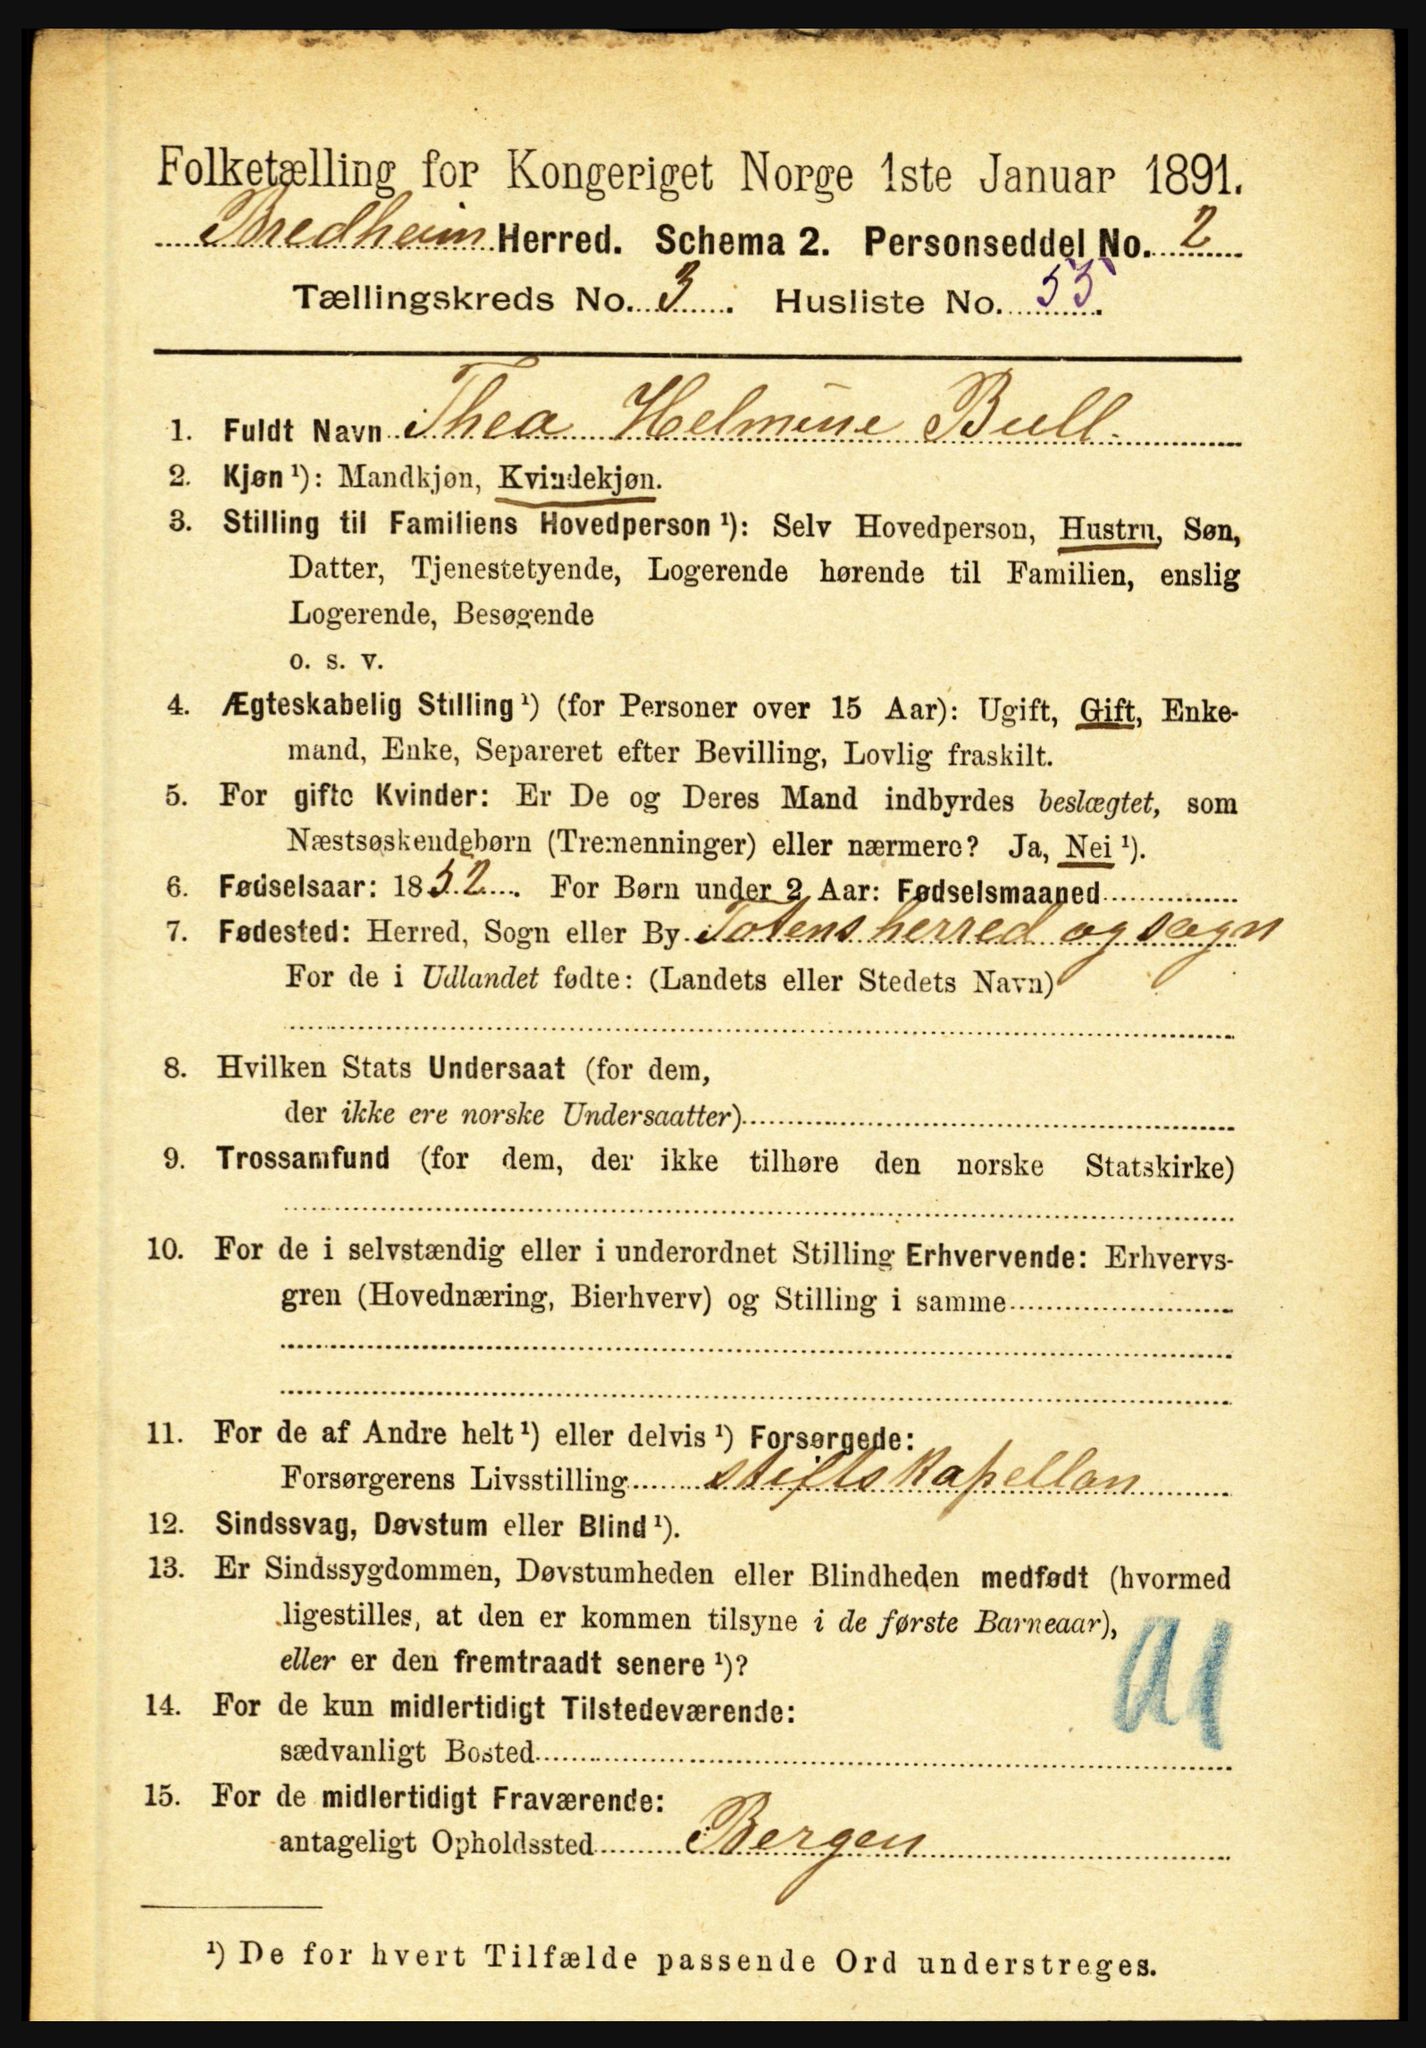 Folketælling for Kongeriget Norge 1ste Januar 1891.
Bredheim Herred. Schema 2. Personseddel No. 2
Tællingskreds No. 3. Husliste No. 55.
1. Fuldt Navn Thea Helmine Bull.
2. Kjøn ¹): Mandkjøn, Kvindekjøn.
3. Stilling til Familiens Hovedperson ¹): Selv Hovedperson, Hustru, Søn,
Datter, Tjenestetyende, Logerende hørende til Familien, enslig
Logerende, Besøgende
o. s. v.
4. Ægteskabelig Stilling ¹) (for Personer over 15 Aar): Ugift, Gift, Enke-
mand, Enke, Separeret efter Bevilling, Lovlig fraskilt.
5. For gifte Kvinder: Er De og Deres Mand indbyrdes beslægtet, som
Næstsøskendebørn (Tremenninger) eller nærmere? Ja, Nei ¹).
6. Fødselsaar: 1852. For Børn under 2 Aar: Fødselsmaaned
7. Fødested: Herred, Sogn eller By Totens herred og sogn
For de i Udlandet fødte: (Landets eller Stedets Navn)
8. Hvilken Stats Undersaat (for dem,
der ikke ere norske Undersaatter)
9. Trossamfund (for dem, der ikke tilhøre den norske Statskirke)
10. For de i selvstændig eller i underordnet Stilling Erhvervende: Erhvervs-
gren (Hovednæring, Bierhverv) og Stilling i samme
11. For de af Andre helt ¹) eller delvis ¹) Forsørgede:
Forsørgerens Livsstilling stiftskapellan
12. Sindssvag, Døvstum eller Blind ¹).
13. Er Sindssygdommen, Døvstumheden eller Blindheden medfødt (hvormed
ligestilles, at den er kommen tilsyne i de første Barneaar),
eller er den fremtraadt senere ¹)?
14. For de kun midlertidigt Tilstedeværende:
sædvanligt Bosted
15. For de midlertidigt Fraværende:
antageligt Opholdssted Bergen
¹) De for hvert Tilfælde passende Ord understreges.